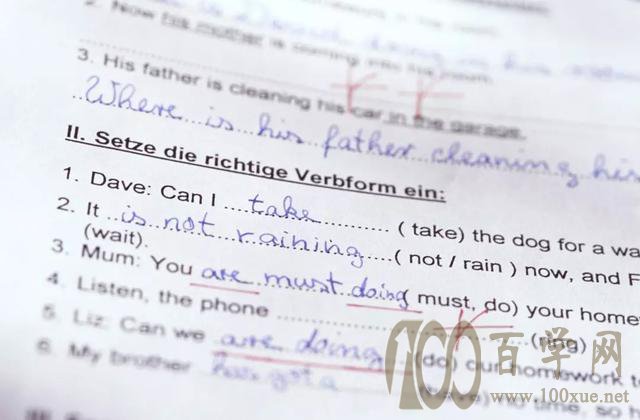 2. Now his mother is
3. His father is cleaning his car in the garage.
Where is his father cleaning his
II. Setze die richtige Verbform ein:
1. Dave: Can I ....take.......... ( take) the dog for a wa
2. It ..is..not...raining....( not / rain ) now, and F
(wait).
3. Mum: You are...must..doing( must, do) your home
4. Listen, the phone ........................ (ring)
5. Liz: Can we ..are..doing.. (do) our homework t
6. My brother has got a
100百学网
www.100xue.net